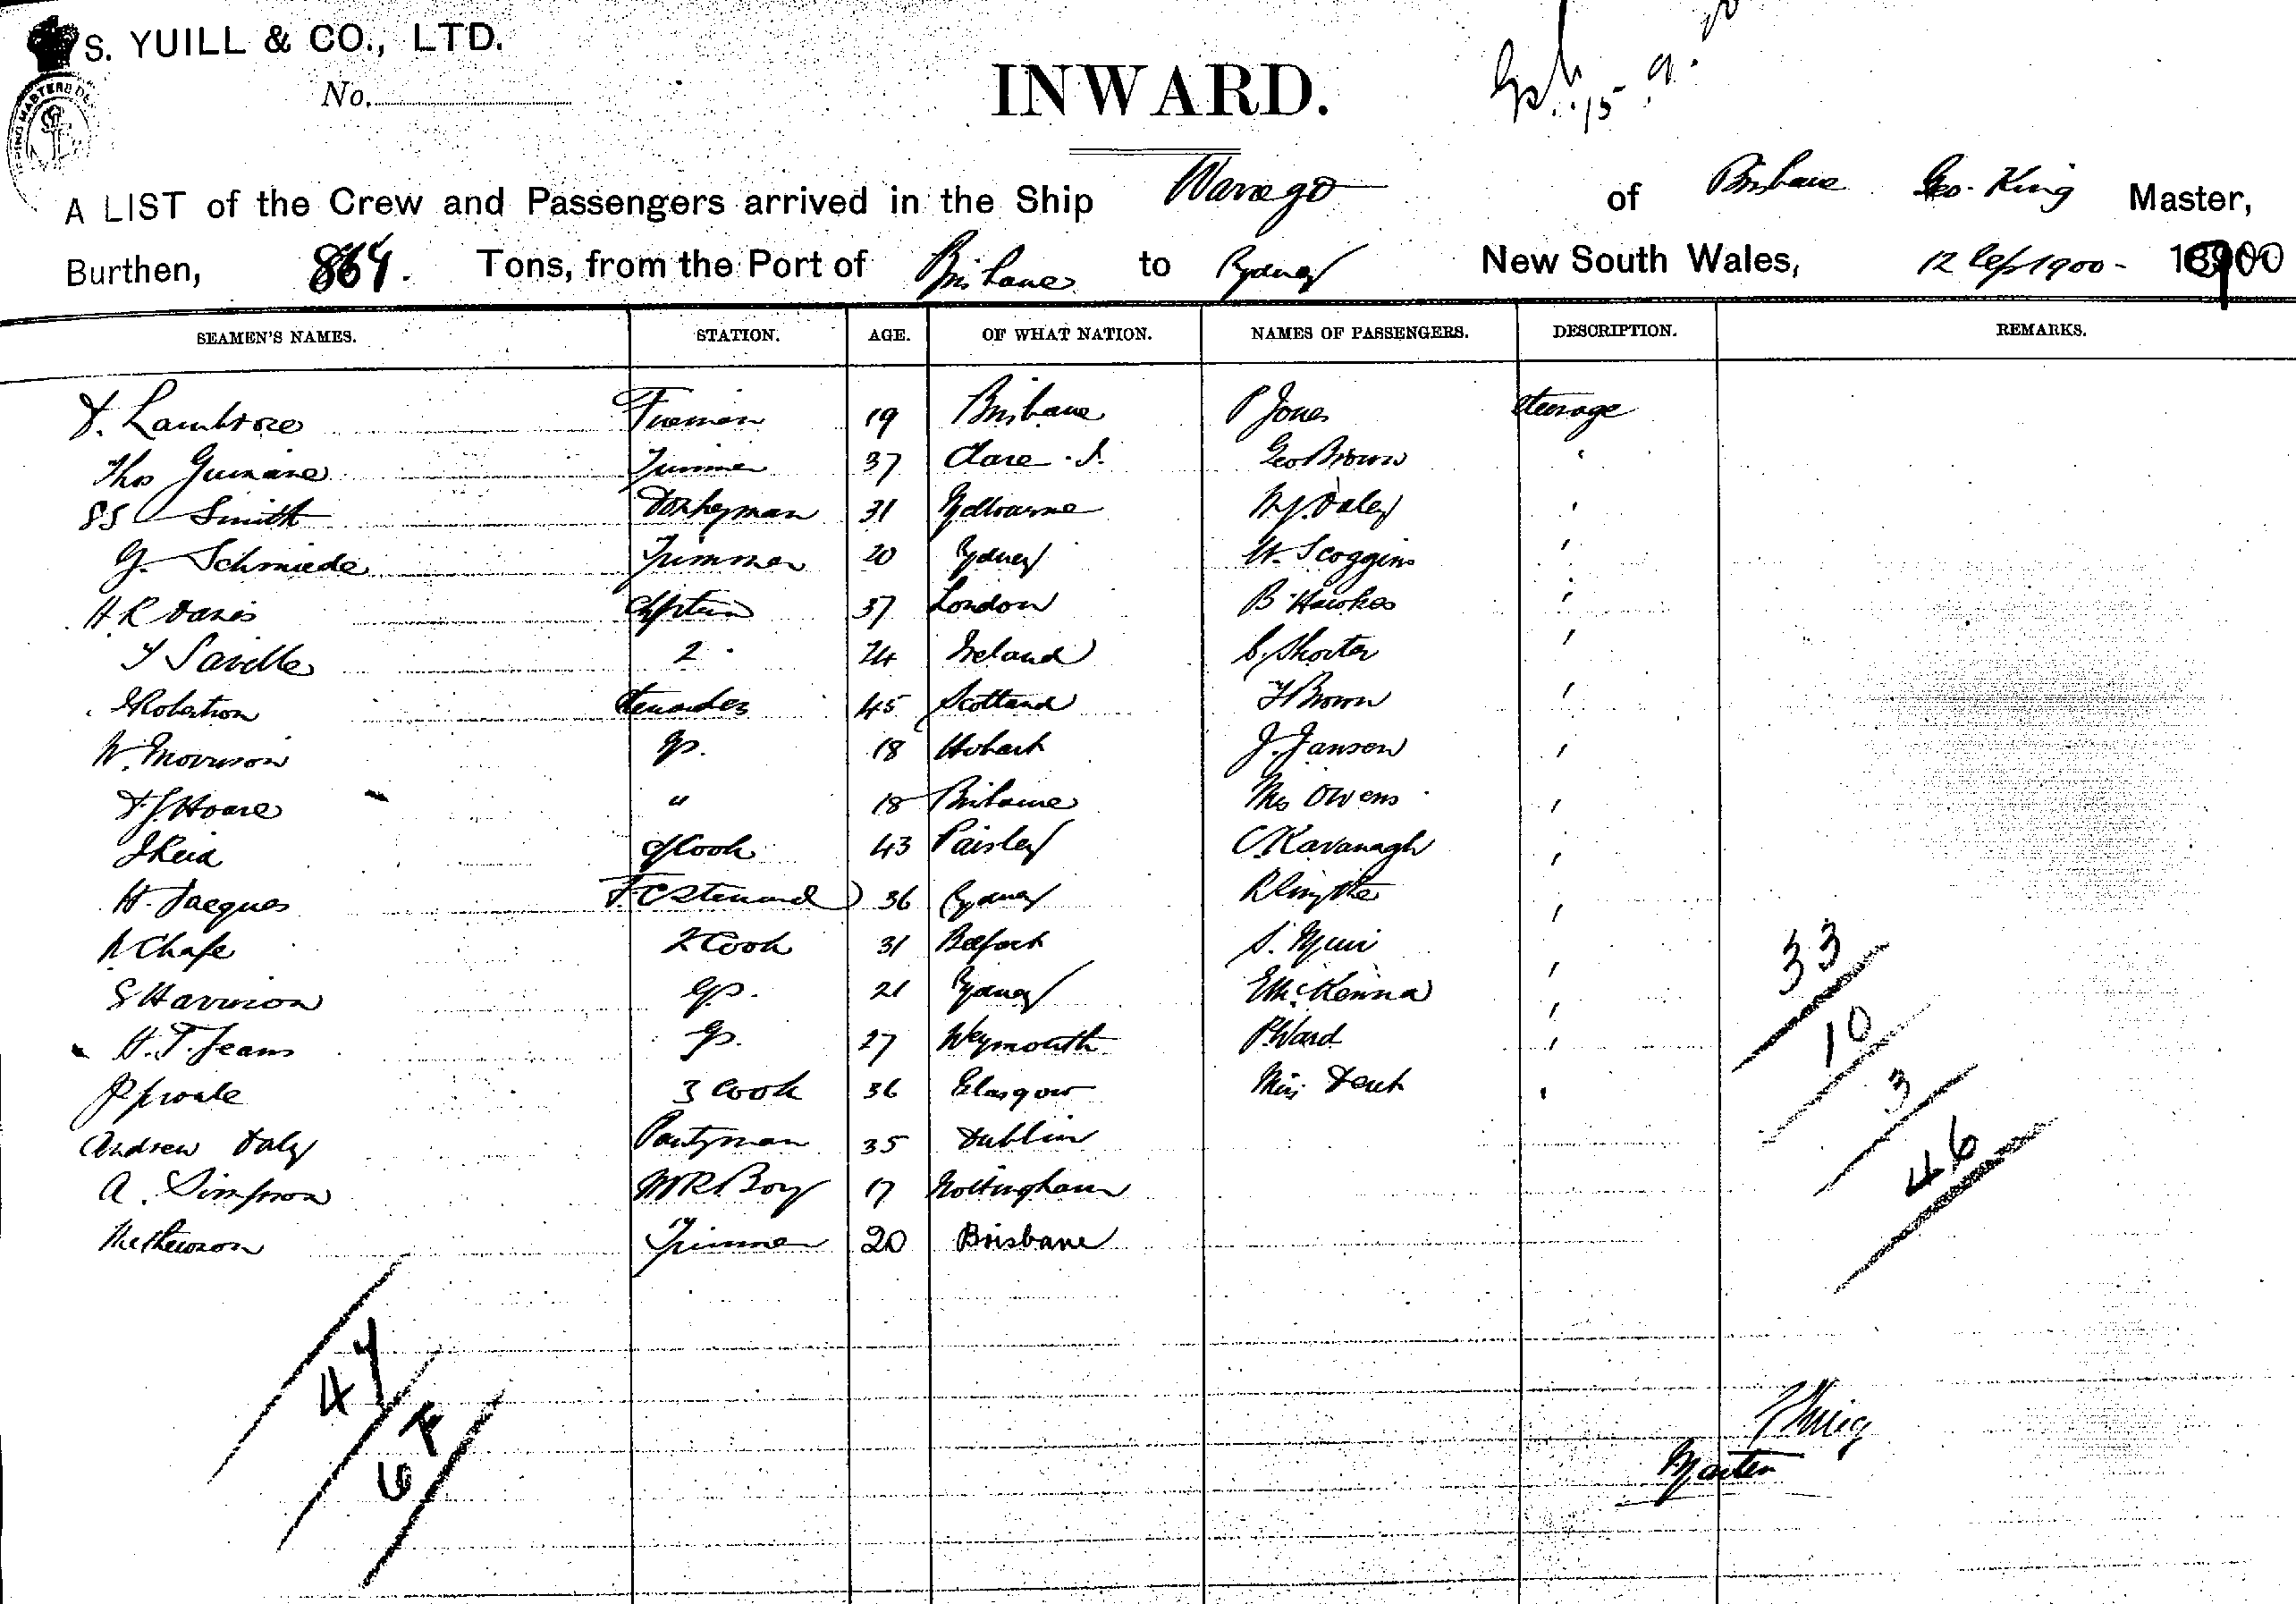 S. YUILL & CO., LTD.
No.
INWARD.
A LIST of the Crew and Passengers arrived in the Ship Warrego of Brisbane Geo. King Master,
Burthen, 864. Tons, from the Port of Brisbane to Sydney New South Wales, 12 Sep 1900 - 1900
SEAMEN'S NAMES. STATION. AGE. OF WHAT NATION. NAMES OF PASSENGERS. DESCRIPTION. REMARKS.
Lambrose Fireman 19 Brisbane P Jones steerage
Thos Guinane Trimmer 37 Clare . I. Geo Brown "
SS Smith Donkeyman 31 Melbourne M J. Daley "
G. Schmiede Trimmer 20 Sydney W. Scoggins "
H R Davis 37 London B Hawkes "
Saville 2 24 Ireland C. Shorter "
J Robertson Stewardess 45 Scotland Brown "
W. Morrison 18 Hobart J. Jansen "
Hoare " 18 Brisbane Mrs Owens "
J Reid Cook 43 Paisley C. Kavanagh "
H. Jacques F. C Steward 36 Sydney "
Chafe 2 Cook 31 Belfast S. Muir "
S Harrison 21 Sydney E McKenna "
H. T. Jeans 27 Weymouth P. Ward "
3 Cook 36 Glasgow Miss Dent "
Andrew Daly Pantryman 35 Dublin
A. Simpson M R. Boy 17 Nottingham
Mathewson Trimmer 20 Brisbane
33
10
3
46
47
64
G King
Master